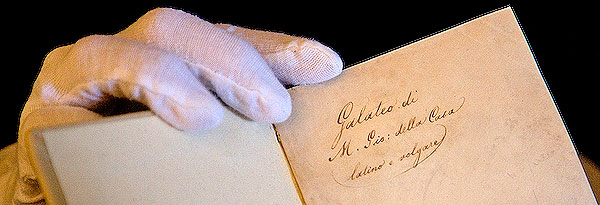 Galateo di
M. Gio: della Casa
latino e volgare